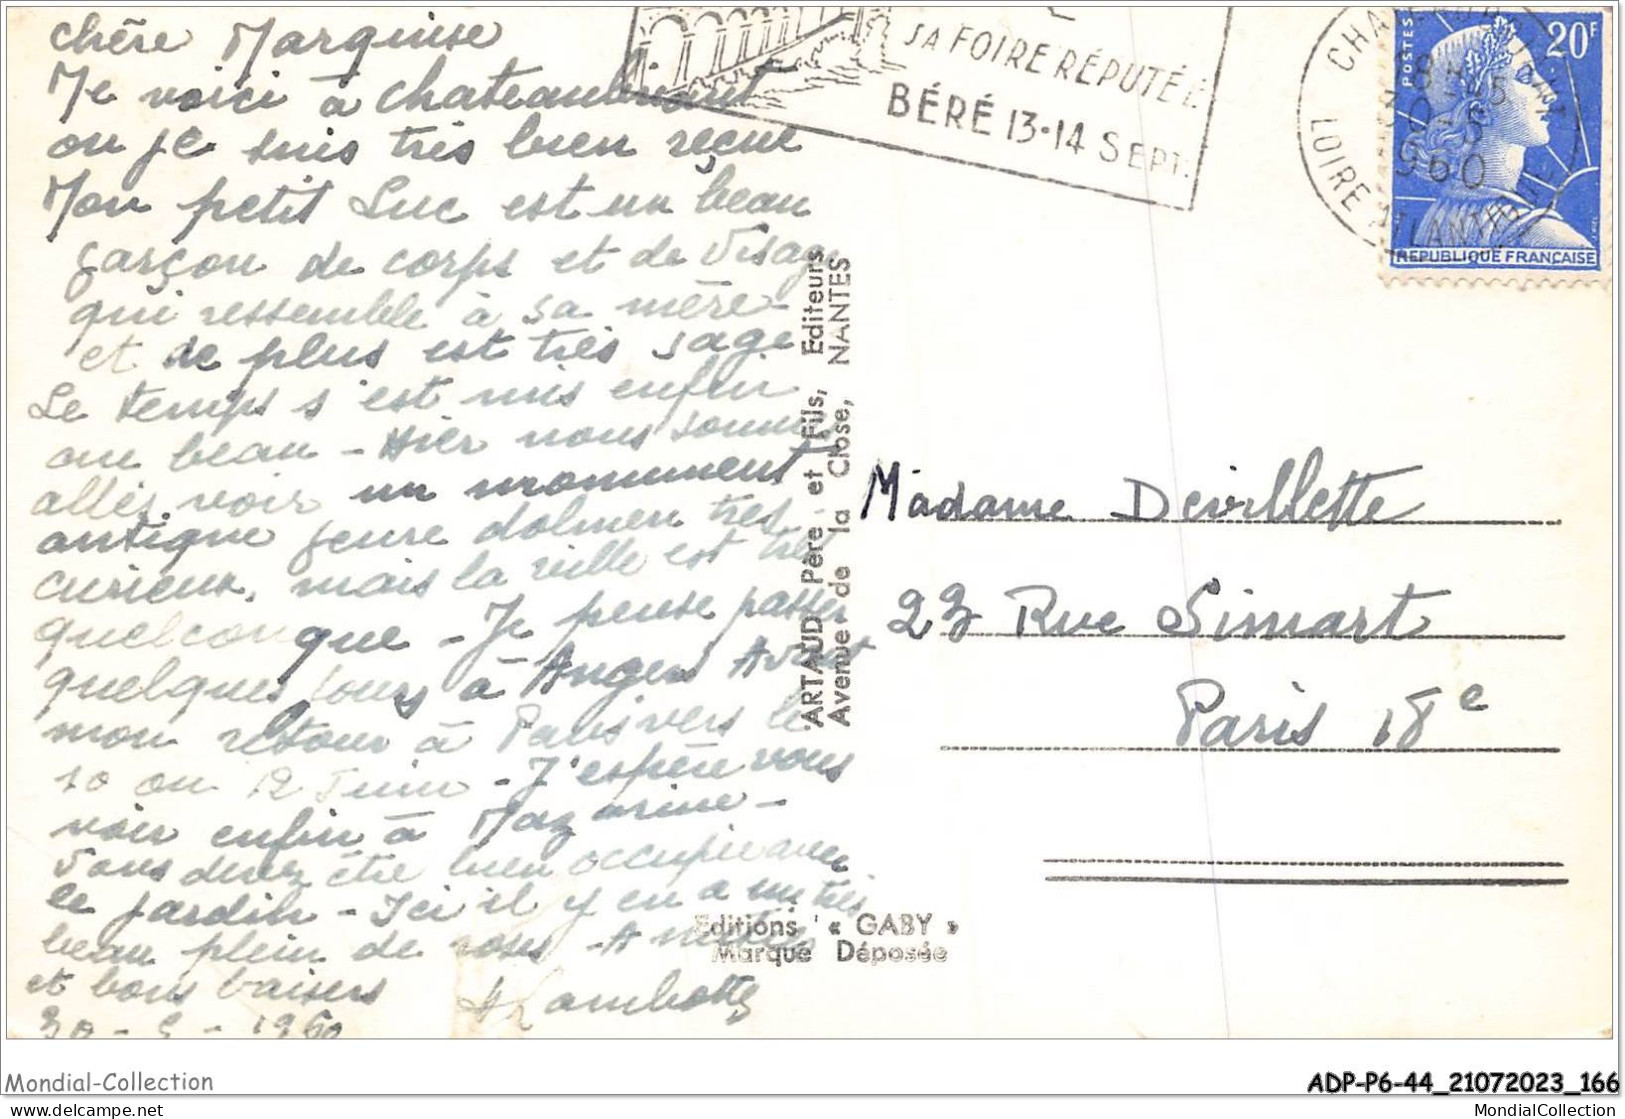 chère Marquise
Me voici à chateaubriant
ou je suis très bien reçue
Mon petit Luc est un beau
garçon de corps et de visage
qui ressemble à sa mère
et de plus est très sage
Le temps s'est mis enfin
au beau - Hier nous sommes
allés voir un monument
antique genre dolmen très
curieux, mais la ville est très
quelconque - Je pense passer
quelques jours à Angers Avant
mon retour à Paris vers le
10 ou 12 Juin - J'espère vous
voir enfin à Mazarine -
Vous devez être bien occupée avec
le jardin - Ici il y en a un très
beau plein de roses - Amitiés
et bons baisers
Lambotte
30 - 5 - 1960
SA FOIRE RÉPUTÉE
BÉRÉ 13-14 SEPT.
LOIRE ATLANTIQUE
18H25
960
POSTES
20F
REPUBLIQUE FRANÇAISE
ARTAUD Père et Fils, Editeurs
Avenue de la Close, NANTES
Madame Devillette
23 Rue Simart
Paris 18e
Editions "GABY"
Marque Déposée
Mondial-Collection
ADP-P6-44_21072023_166
mondial-collection.delcampe.net
MondialCollection